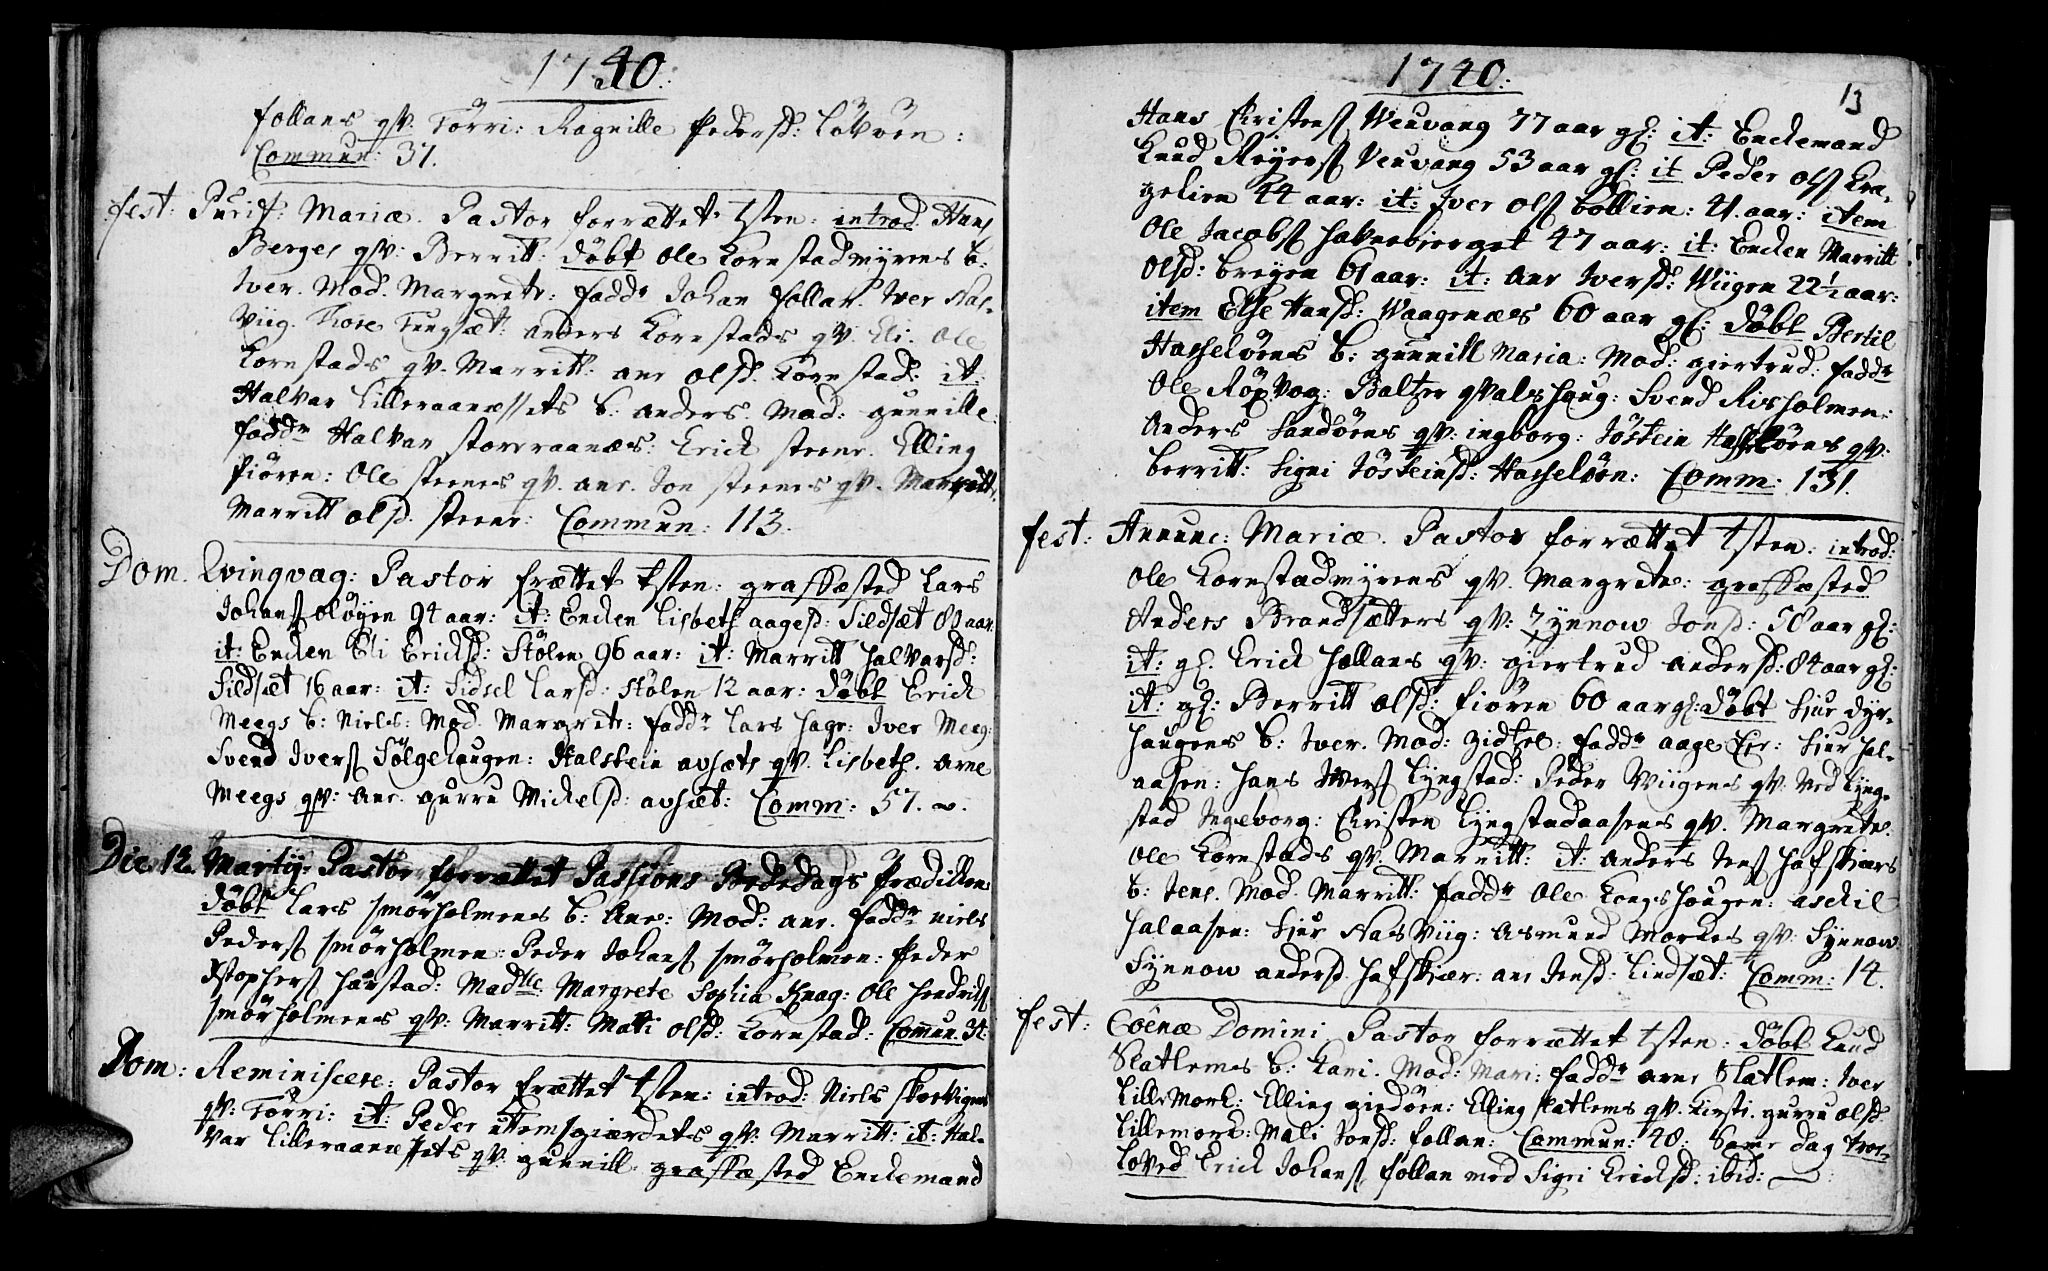 1740.
follans qv. Törri: Ragnille Pedersd: Lövöen:
Commun: 37.
fest: Purif: Mariæ. Pastor forrættet tsten: introd. Hans
Berges qv: Berritt: döbt Ole Kornstadmyrens b:
Iver. Mod. Margrete: fadd: Johan follan. Iver Nas-
Viig. Tore Tungsæt: anders Kornstads qv. Eli. Ole
Kornstads qv. Marritt: ane olsd. Kornstad: it:
Halvar Lilleraanæssets b: anders. Mod: gunnille:
fadd: Halvar storraanæs: Erick steene. Elling
fiören: Ole steenes qv. ane. Jon steenes qv. Marritt.
Marritt olsd. steene: Commun: 113.
Dom. Qvinqvag: Pastor frættet tsten: graffæsted Lars
Johans Ølöyen 94 aar: it: Encken Lisbeth aagesd: Sildsæt 80 aar
it: Encken Eli Ericksd: Stölen 96 aar: it: Marritt Halvarsd:
Sildsæt 16 aar: it: Sidsel Larsd: Stölen 12 aar: döbt Erick
Meegs b: Niels: Mod. Margrete: fadd: Lars Hage: Iver Meeg:
Svend Ivers Sölgehaugen: Halstein avsæts qv. Lisbeth. Arne
Meegs qv: ane. gurru Mickelsd: avsæt: Comm: 57.
Die 12. Martij: Pastor forrættet Passions Bededags Prædiken
döbt Lars smörholmens b: Ane: Mod: ane. fadd: Niels
Peders smörholmen: Peder Johans smörholmen: Peder
Xstophers Harstad: Madlle: Margrete Sophia Knag: Ole Hendricks
smörholmens qv: Marritt: Mali olsd: Kornstad: Commun. 31:
Dom: Reminiscere: Pastor frættet tsten: introd: Niels
qv: Törri: it: Peder ottemsgiærdets qv: Marritt: it: Hal-
var Lilleraanæssets qv: gunnill: graffæsted Enckemand
1740.
13
Hans Christens Weuvang 77 aar gl: it: Enckemand
Knud Reyers Veuvang 53 aar gl: it Peder ols Kra-
gelien 44 aar: it: Iver ols böllien: 41. aar: item
Ole Jacobs Havnebierget 47 aar: it: Encken Marritt
olsd: breyen 61 aar: it: ane Iversd: Wiigen 22½ aar:
item Else Hansd: Waagenæs 60 aar gl: döbt Bertil
Hasselöens b: gunnill Maria: Mod: giertrud: fadd:
Ole Röpvog: Baltzer qvalshaug: Svend Risholmen:
Anders Sandöens qv: ingborg: Jöstein Hasselöens qv:
berritt: Signi Jösteinsd: Hasselöen: Comm: 131.
fest: Annunc: Mariæ. Pastor forrættet tsten: introd:
Ole Kornstadmyrens qv. Margrete: graffæsted
Anders Brandsætters qv: Zynnow Jonsd: 58 aar gl:
it: gl. Erick Hollans qv: giertrud andersd: 84 aar gl:
it: gl: Berritt olsd: fiören 60 aar gl: döbt Siur dyr-
haugens b: Iver. Mod: Zidsel: fadd: aage Eee: Siur Hal-
aasen: Hans Ivers Lyngstad: Peder Viigens qv: Ved Lyng-
stad Ingeborg: Christen Lyngstadaasens qv. Margrete.
Ole Kornstads qv: Marritt: it: Anders Jens Hafskiærs
b: Jens. Mod. Marritt: fadd: Ole Kongshaugen: asckil
Halaasen: Siur Nasviig: Asmund Morkes qv: Synnow
Synnow andersd. Hafskiær: ane Jensd: Lindsæt: Comm: 14.
fest: Coenæ Domini Pastor forrættet tsten: döbt Knud
Slatlems b: Kari. Mod: Mari: fadd: arne Slatlem: Iver
Lille Mork: Elling giedöen: Elling slatlems qv. Kirsti. gurru olsd
Lillemork: Mali Jonsd: follan: Commun: 48: Same dag troe-
loved Erick Johans follan med Sigri Ericksd: ibid: